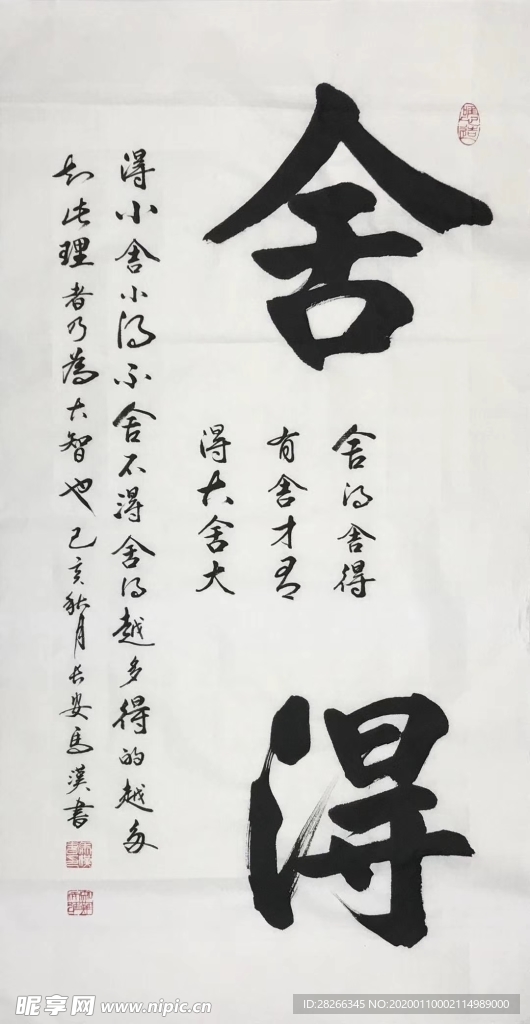 舍
得
舍得舍得
有舍才有
得大舍大
得小舍小得不舍不得舍得越多得的越多
知此理者乃為大智也己亥秋月长安馬漢書
昵享网 www.nipic.cn
ID:28266345 NO:20200110002114989000